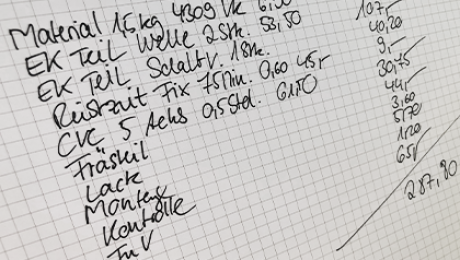 Material 1,5 kg 430g Vk 6,
EK Teil Welle 2 Stk. 53,50 107,-
EK Teil Schaltv. 1 Stk. 40,20
Rüstzeit Fix 75 Min. 0,60 45,- 9,-
CNC 5 Achs 0,5 Std. 61,50 30,75
Frästeil 44,-
Lack 3,60
Montage
Kontrolle 1,20
TuV 65,-
287,80